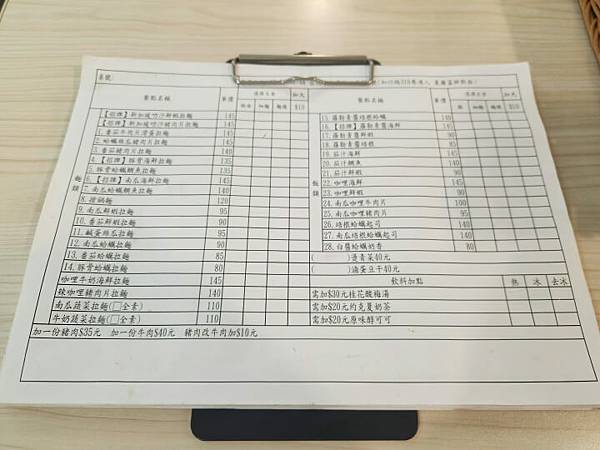 桌號:
餐點名稱 單價 選擇主食 加大
飯 細麵 麵條 $10
麵類
【招牌】新加坡叻沙鮮蝦拉麵 145
【招牌】新加坡叻沙豬肉片拉麵 145
1. 番茄牛肉片滑蛋拉麵 145
2. 蛤蠣絲瓜豬肉片拉麵 145
3. 番茄豬肉片拉麵 140
4. 【招牌】豚骨海鮮拉麵 135
5. 豚骨蛤蠣鯛魚拉麵 135
6. 【招牌】南瓜海鮮拉麵 145
7. 南瓜蛤蠣鯛魚拉麵 140
8. 擔擔麵 120
9. 南瓜鮮蝦拉麵 95
10. 番茄鮮蝦拉麵 90
11. 鹹蛋絲瓜拉麵 95
12. 南瓜蛤蠣拉麵 90
13. 番茄蛤蠣拉麵 85
14. 豚骨蛤蠣拉麵 80
咖哩牛奶海鮮拉麵 145
辣咖哩豬肉片拉麵 140
南瓜蔬菜拉麵(□全素) 110
牛奶蔬菜拉麵(□全素) 110
加一份豬肉$35元 加一份牛肉$40元 豬肉改牛肉加$10元
餐點名稱 單價 選擇主食 加大
飯 細麵 麵條 $10
飯類
15. 蘿勒青醬培根蛤蠣 140
16. 【招牌】蘿勒青醬海鮮 145
17. 蘿勒青醬鮮蝦 90
18. 蘿勒青醬培根 85
19. 茄汁海鮮 145
20. 茄汁鯛魚 140
21. 茄汁鮮蝦 90
22. 咖哩海鮮 145
23. 咖哩鮮蝦 90
24. 南瓜咖哩牛肉片 100
25. 南瓜咖哩豬肉片 95
26. 培根蛤蠣起司 140
27. 南瓜培根蛤蠣起司 140
28. 白醬蛤蠣奶香 80
( )燙青菜40元
( )滷蛋豆干40元
飲料加點 熱 冰 去冰
需加$30元桂花酸梅湯
需加$20元約克夏奶茶
需加$20元原味醇可可